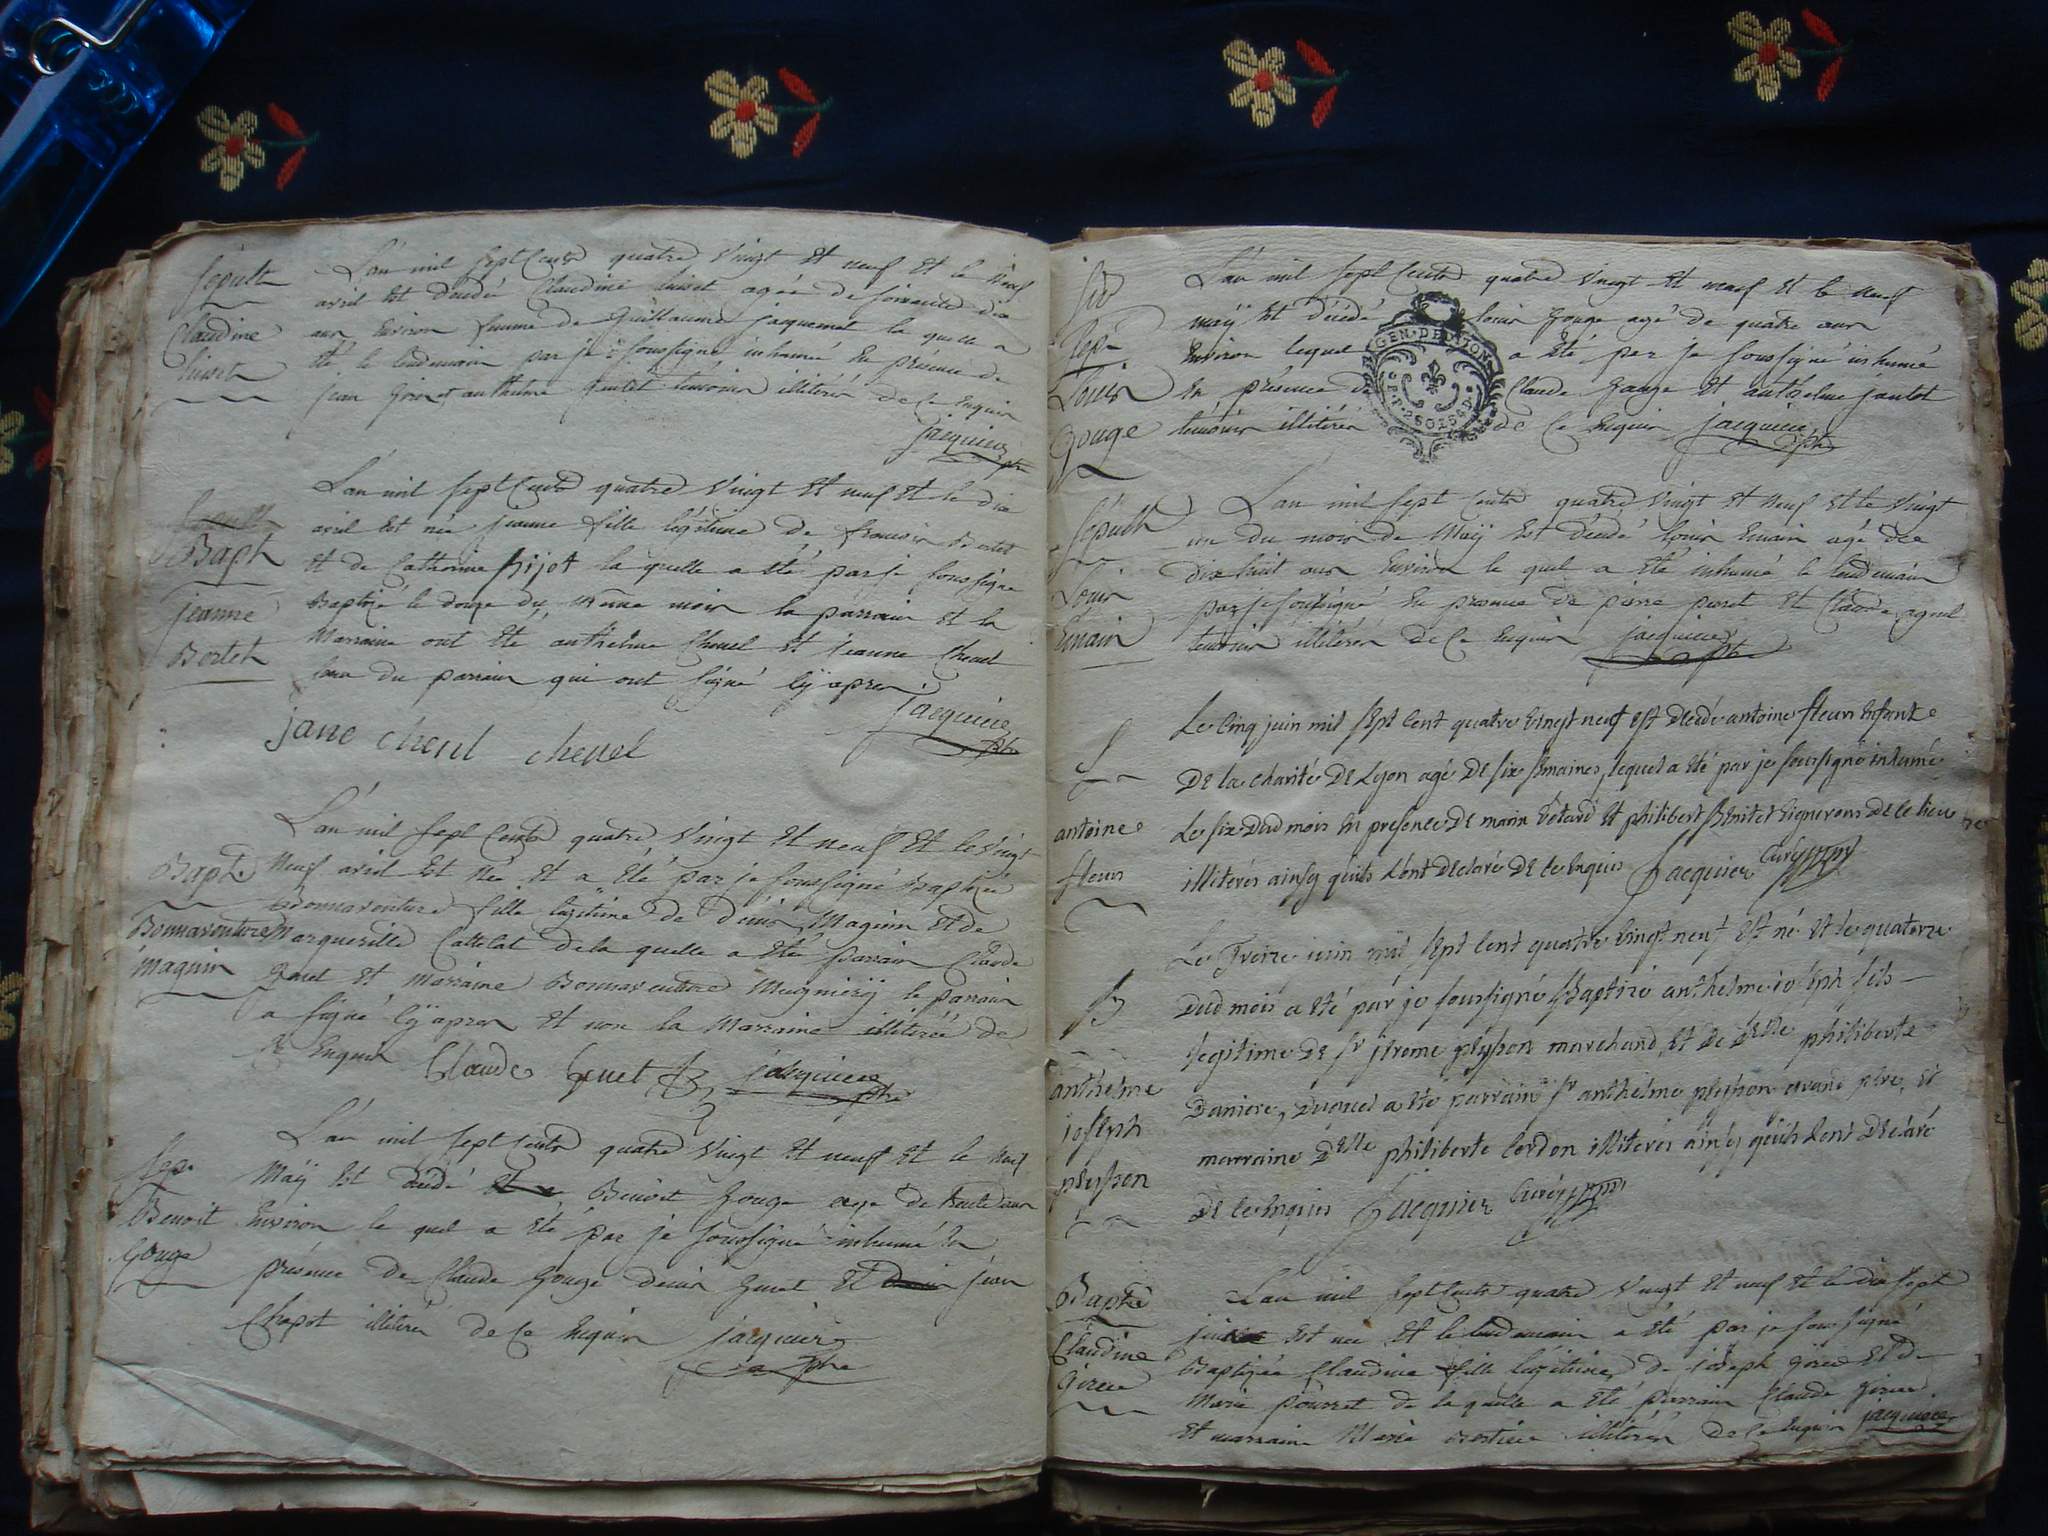 Sepult
Claudine
L'an mil sept Cents quatre vingt et neuf et le neuf
avril est décédé Claudine agée de soixante dix
ans Environ femme de Guillaume jacquemet la quelle a
été le lendemain par je soussigné inhumé En présence de
jean anthelme témoins illitérés de Ce Enquis
jacquier
Baph
jeanne
Bertet
L'an mil sept Cents quatre vingt et neuf et le dix
avril est née jeanne fille légitime de francois Bertet
et de Catherine hijot la quelle a été par je soussigné
Baptizé le douze du même mois le parrain et la
Marraine ont été anthelme Chenel et jeanne Chenel
du parrain qui ont signé cÿ apres
jacquier
jane chenl chenel
Baph
Bonnaventure
maguin
L'an mil sept Cents quatre vingt et neuf et le vingt
neuf avril est née et a été par je soussigné Baptizée
Bonnaventure fille légitime de denis Maguin et de
Margueritte Cattelat de la quelle a été parrain Claude
Genet et Marraine Bonnaventure le parrain
a signé cÿ apres et non la Marraine illiterée de
Ce Enquise Claude Genet jacquier
Sep
Benoit
Gouge
L'an mil sept Cents quatre vingt et neuf et le neuf
Maÿ est décédé Benoit Gouge agé de trente ans
Environ le quel a été par je soussigné inhumé En
présence de Claude Gouge denis Genet et jean
Chapot illitérés de Ce Enquis jacquier
Sep
Louis
Gouge
L'an mil sept Cents quatre vingt et neuf et le neuf
maÿ est décédé louis Gouge agé de quatre ans
Environ lequel a été par je soussigné inhumé
En présence de Claude Gouge et anthelme jantet
témoins illitérés de Ce Enquis jacquier
GEN. DE DIJON
Sepult
Louis
Emain
L'an mil sept Cents quatre vingt et neuf et le vingt
un du mois de Maÿ est décédé louis Emain agé de
dix huit ans Environ le quel a été inhumé le lendemain
par je soussigné En presence de pierre peret et Claude
temoins illitérés de Ce Enquis jacquier
S
antoine
fleurs
Le cinq juin mil sept cent quatre vingt neuf est decédé antoine fleurs Enfant
De la charité De Lyon agé De six semaines, lequel a été par je soussigné inhumé
Le six dud mois En presence De marin Vétard et philibert Benitet vignerons De ce lieu
illiterés ainsy qu'ils L'ont Declaré De ce enquis Jacquier Curé
B
anthelme
joseph
pleyson
Le Treize juin mil sept cent quatre vingt neuf est né et le quatorze
Dud mois a été par je soussigné Baptizé anthelme joseph fils
legitime De Sr jerome pleyson marchand, et De Delle philiberte
Daniere, Duquel a été parrain Sr anthelme pleyson grand pere, et
marraine Delle philiberte cordon illiterés ainsy qu'ils L'ont Declaré
De ce enquis Jacquier Curé
Baphe
Claudine
Giree
L'an mil sept Cents quatre vingt et neuf et le dix sept
est née et le lendemain a été par je soussigné
Baptizée Claudine fille légitime de joseph Giree et de
Marie pourret de la quelle a été parrain Claude Giree
et marraine Marie illitérés de Ce Enquis jacquier